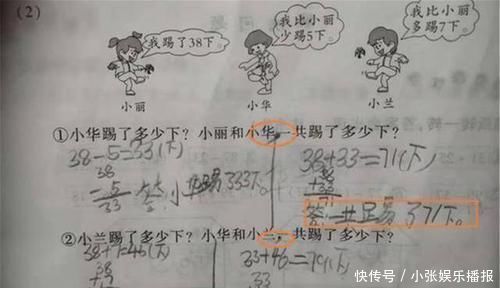 (2)
我踢了38下。
我比小丽
少踢5下。
我比小丽
多踢7下。
小丽
小华
小兰
①小华踢了多少下？小丽和小华一共踢了多少下？
38-5=33(下)
38
-5
33
38+33=71(下)
38
+33
71
②小兰踢了多少下？小华和小兰一共踢了多少下？
38
33
快传号／小张娱乐播报